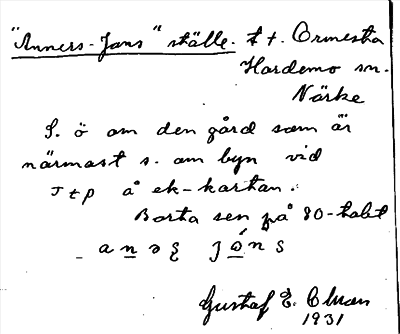 "Anners-Jans" ställe. t t. Ormesta
Hardemo sn.
Närke
S. ö om den gård som är
närmast s. om byn vid
J t p å ek-kartan.
Borta sen på 80-talet
Gustaf E.
1931